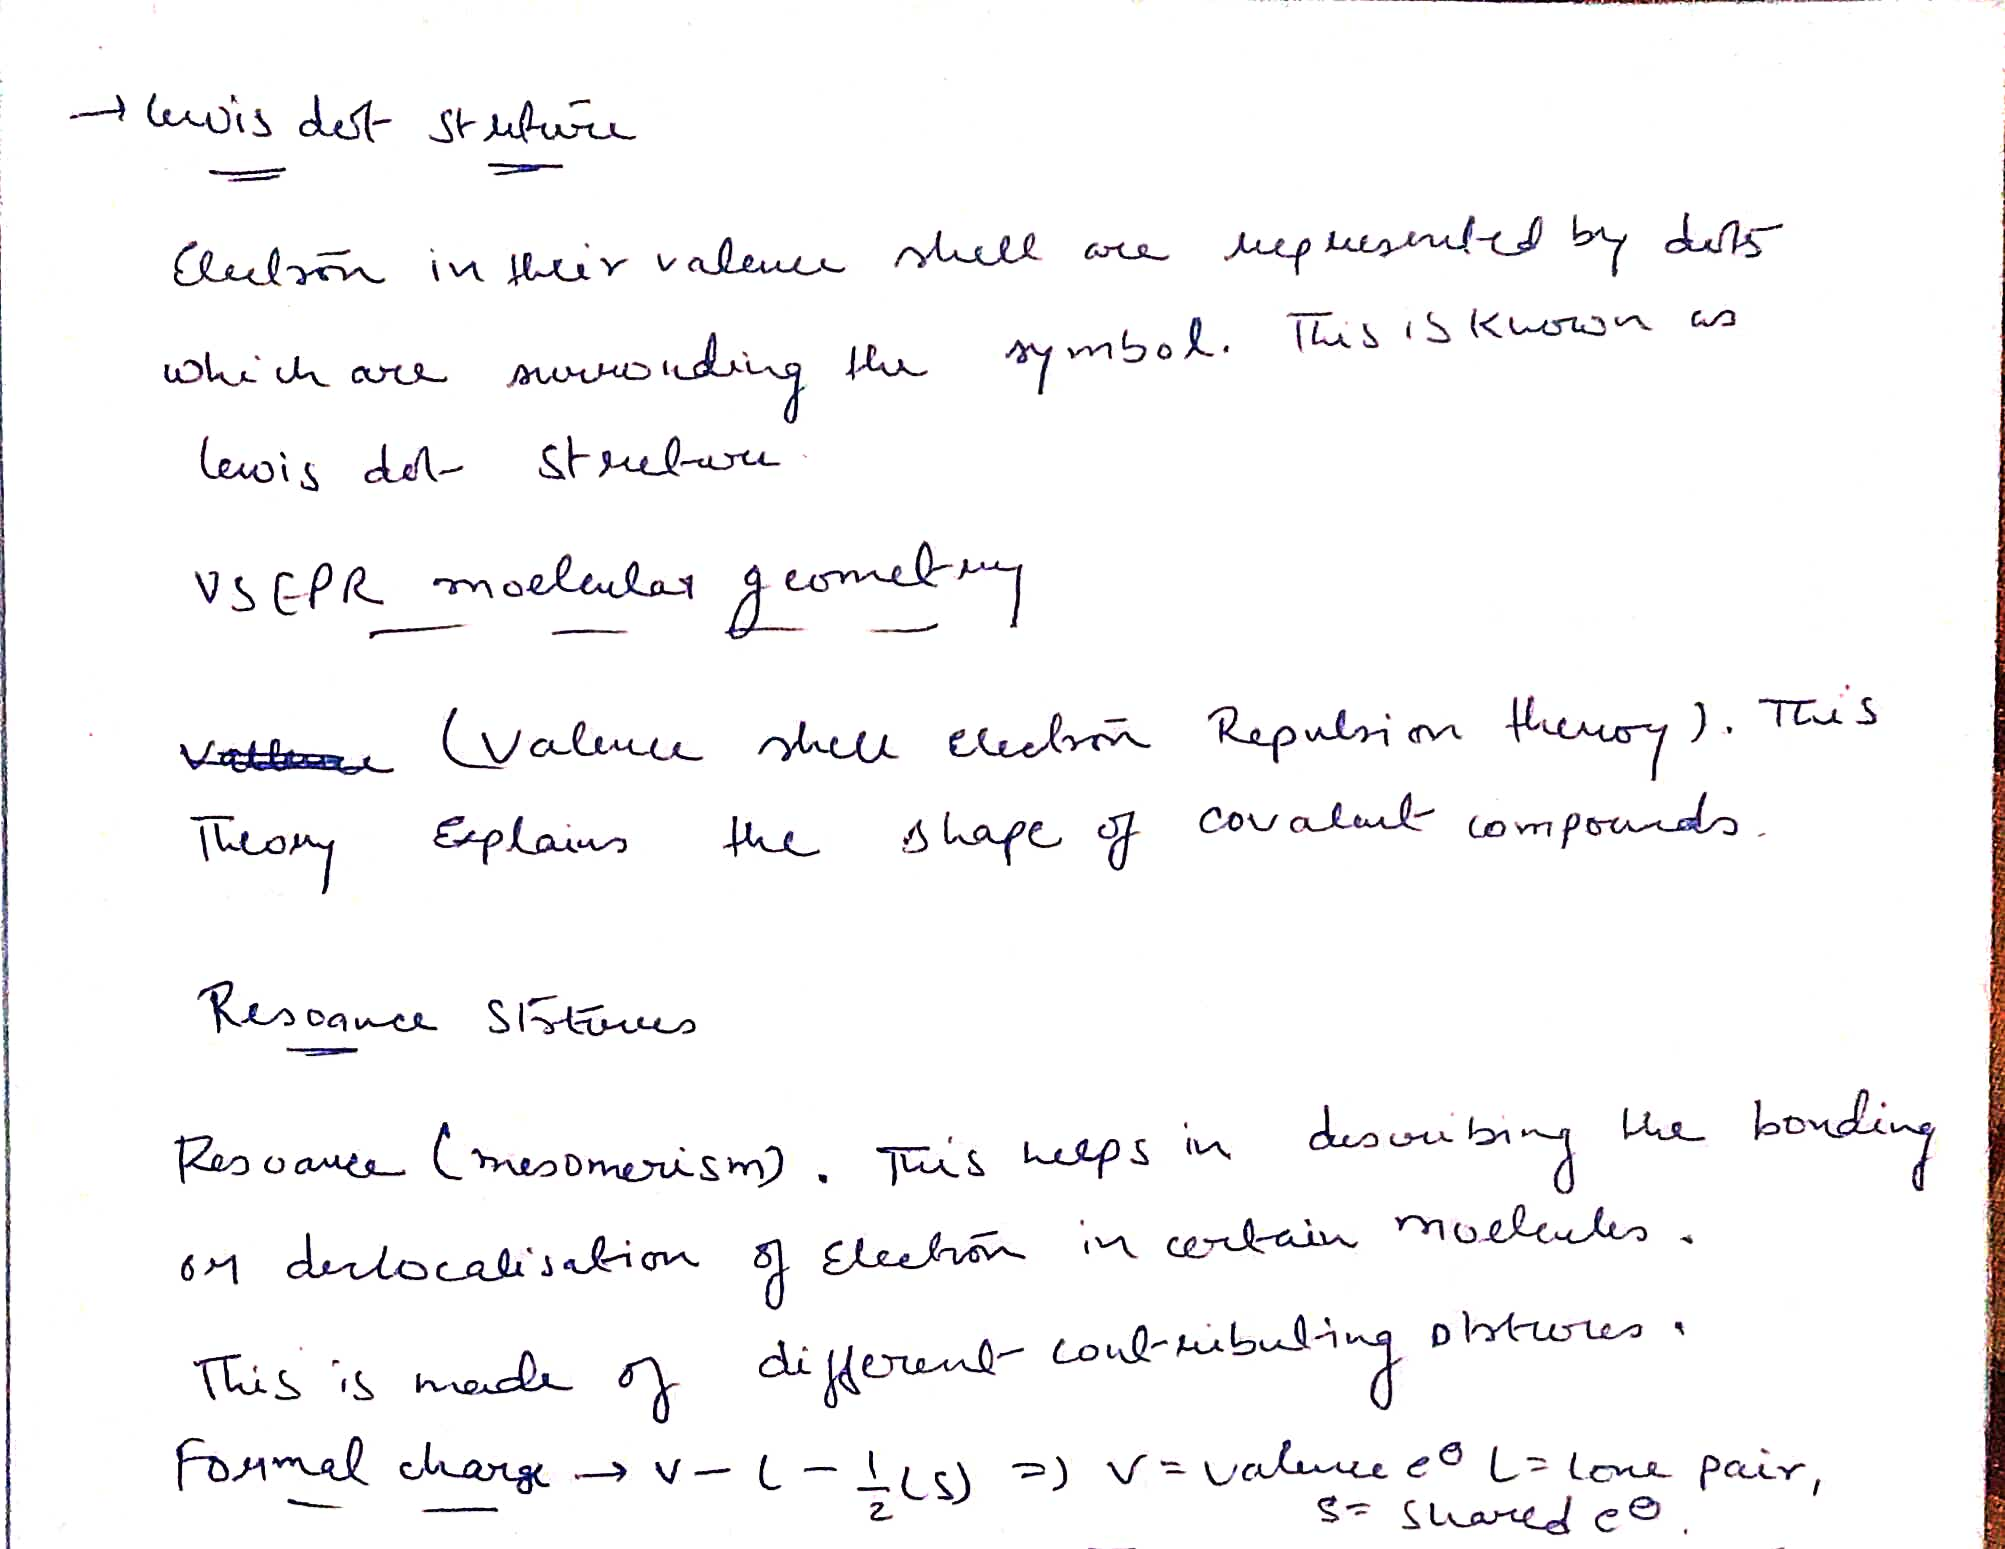 → Lewis dot struture
Electron in their valence shell are represented by dots
which are surrouding the symbol. This is known as
Lewis dot structure
VSEPR moelcular geometry
(Valence shell electron Repulsion theroy). This
Theory Explains the shape of covalent compounds.
Resoance
Resoance (mesomerism). This helps in describing the bonding
or derlocalisation of Electron in certain moelcules.
This is made of different contributing
Formal charge → V - L - 1/2 (S) => V = valence e⊖ L = lone pair,
S = shared e⊖.